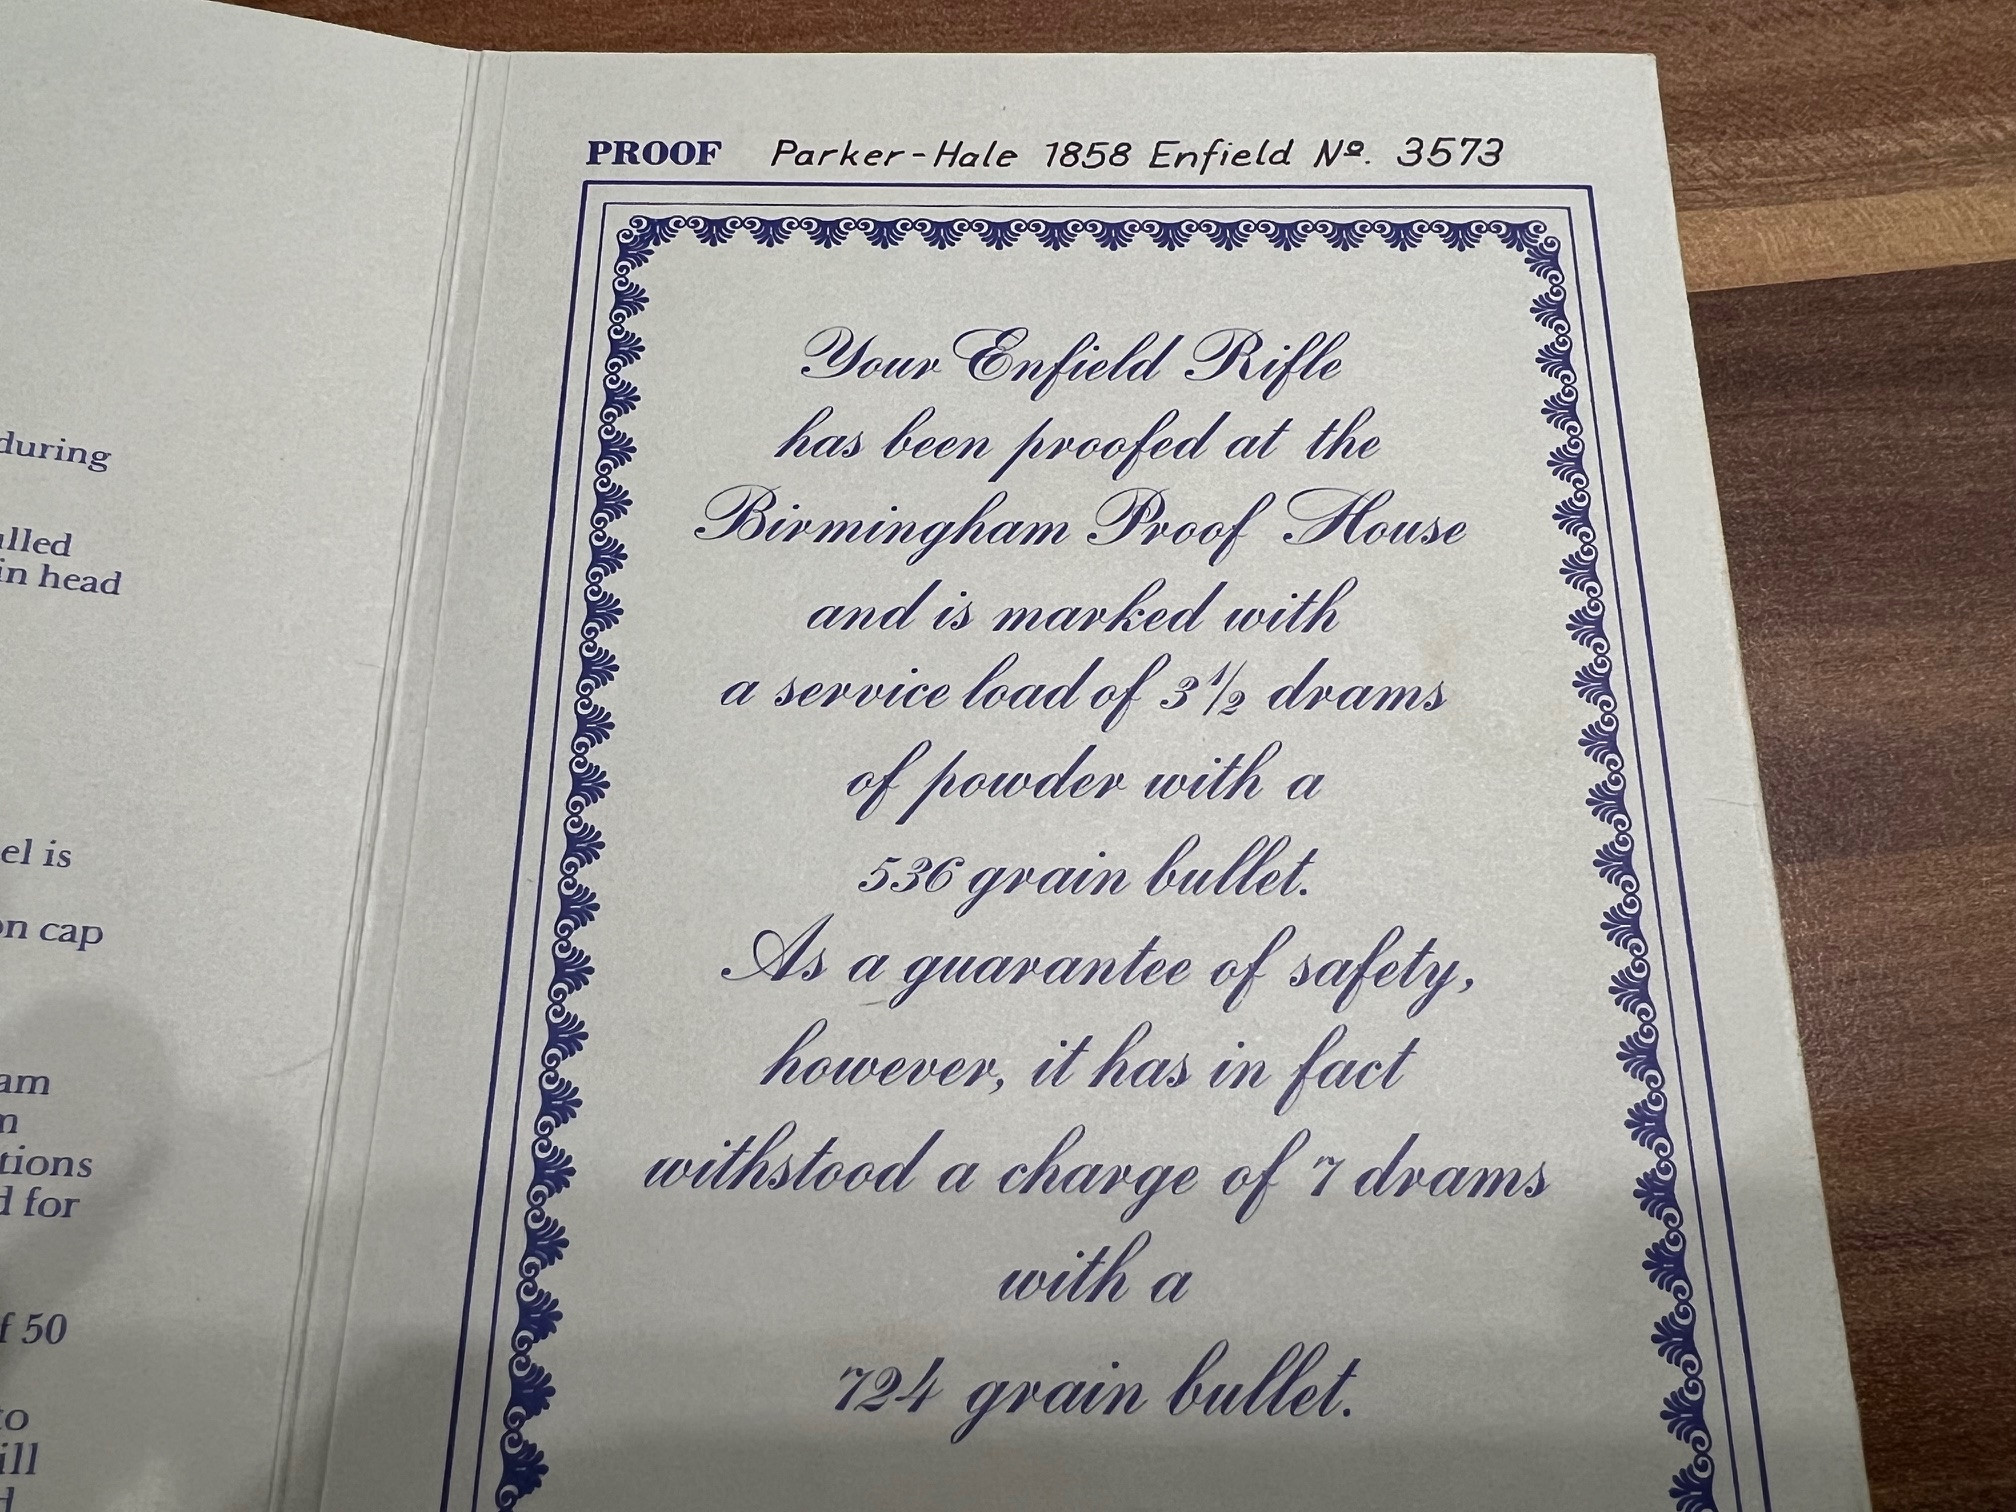 during
alled
in head
el is
on cap
am
m
tions
d for
f 50
to
ill
PROOF Parker-Hale 1858 Enfield Nº. 3573
Your Enfield Rifle
has been proofed at the
Birmingham Proof House
and is marked with
a service load of 3 1/2 drams
of powder with a
536 grain bullet.
As a guarantee of safety,
however, it has in fact
withstood a charge of 7 drams
with a
724 grain bullet.